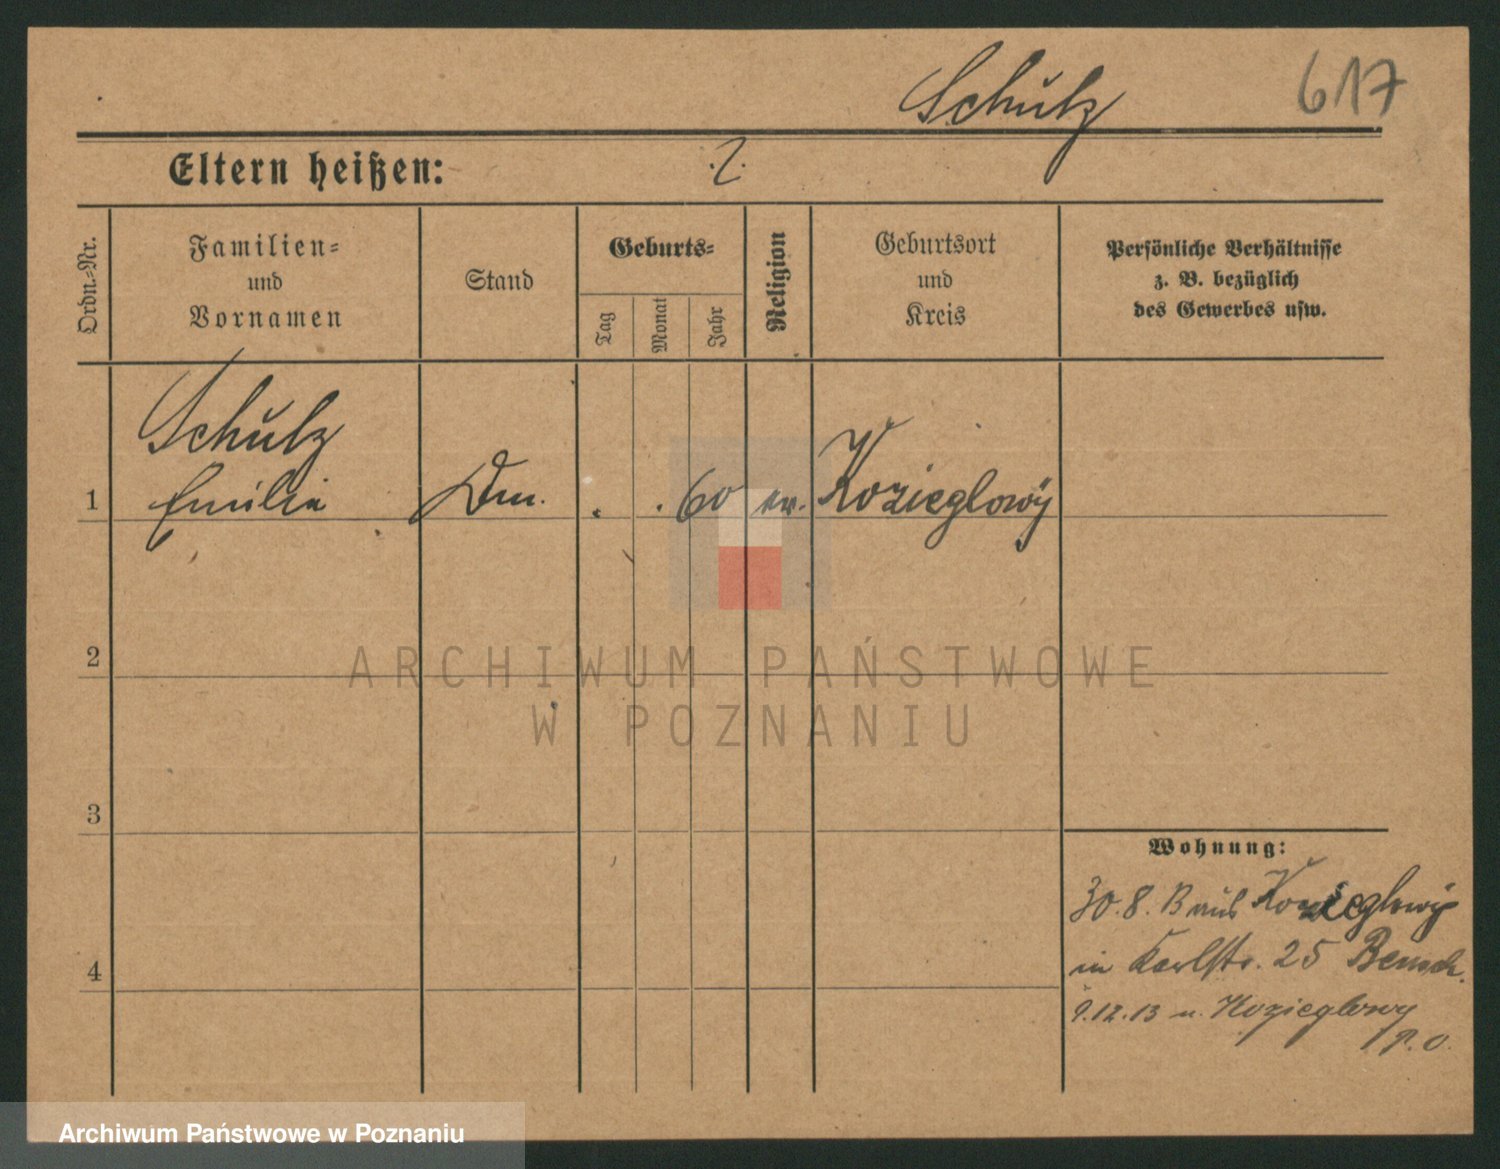 Schulz 617
Eltern heißen: .?.
Ordn.-Nr.
Familien-
und
Vornamen
Stand
Geburts-
Tag
Monat
Jahr
Religion
Geburtsort
und
Kreis
Persönliche Verhältnisse
z. B. bezüglich
des Gewerbes usw.
Schulz
1 Emilie Dm. . . 60 ev. Kozieglowy
2
ARCHIWUM PAŃSTWOWE
W POZNANIU
3
Wohnung:
30.8.13 aus Kozieglowy
4 in Karlstr. 25
9.12.13 n. Kozieglowy
P. O.
Archiwum Państwowe w Poznaniu